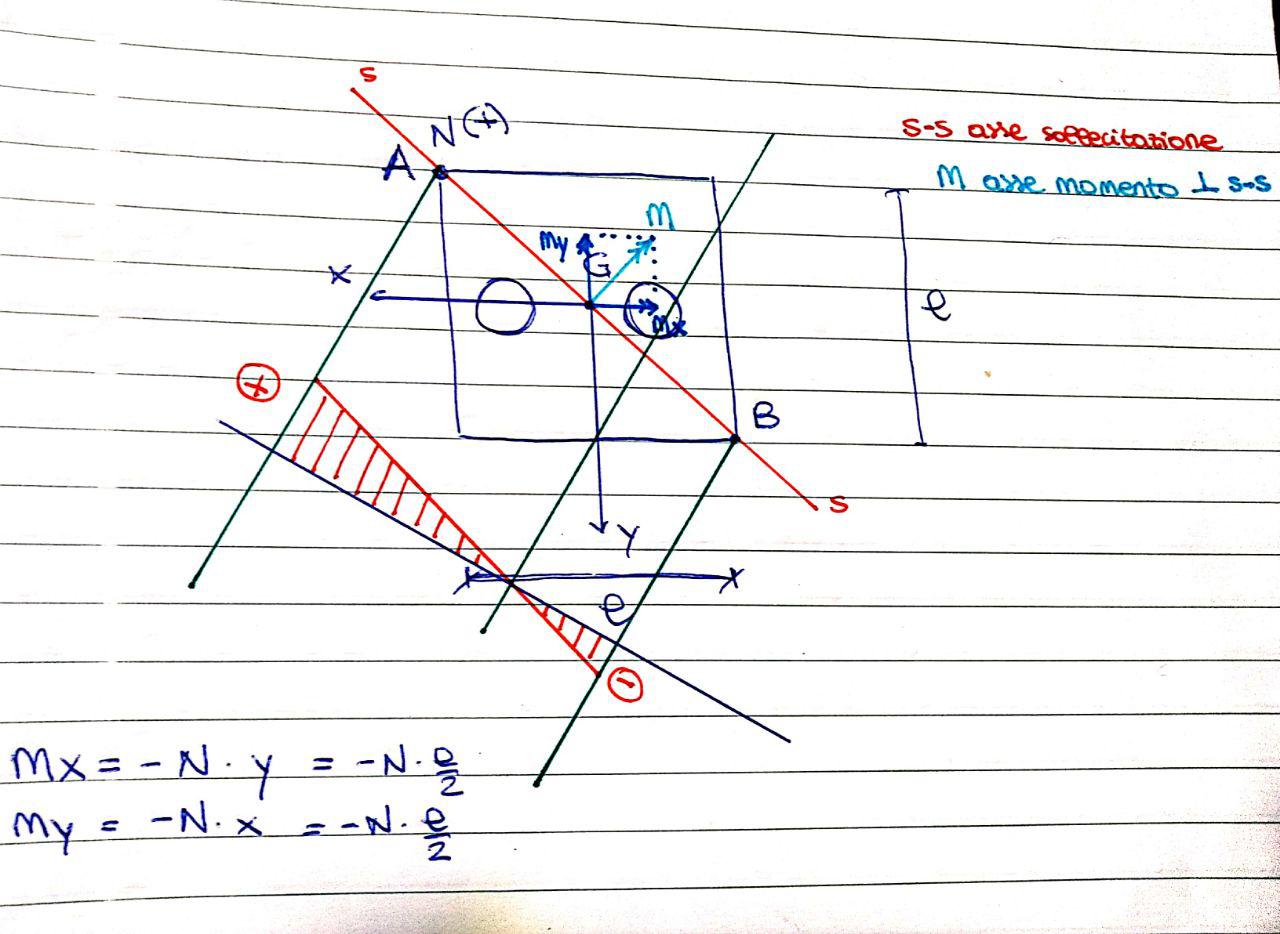 s
N(+)
A
s-s asse sollecitazione
M asse momento ⊥ s-s
M
My
G
x
Mx
l
+
B
s
y
l
-
Mx = - N · y = -N · l/2
My = -N · x = -N · l/2